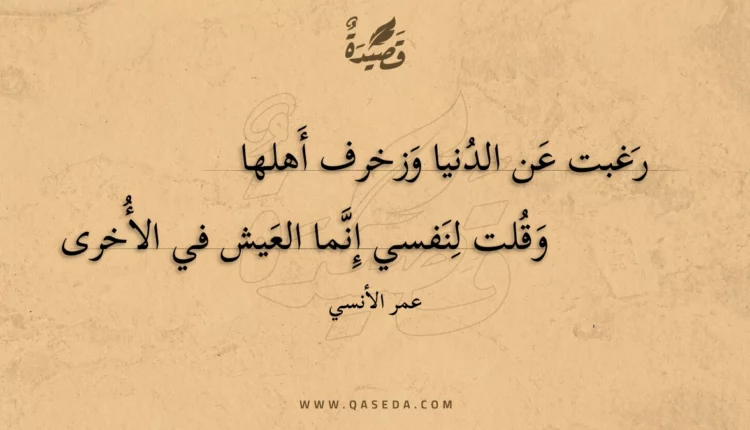 قَصِيْدَةٌ
رَغبت عَن الدُنيا وَزخرف أَهلها
وَقُلت لِنَفسي إِنَّما العَيش في الأُخرى
عمر الأنسي
WWW.QASEDA.COM